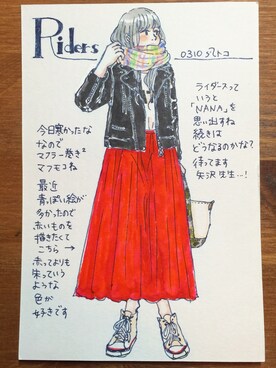 Riders
0310 ハトコ
今日寒かったな
なので
マフラー巻き²
マフモコね
最近
青っぽい絵が
多かったので
赤いものを
描きたくて
こちら →
赤ってよりも
朱っていう
ような
色が
好きです
ライダースって
いうと
「NANA」を
思い出すね
続きは
どうなるのかな?
待ってます
矢沢先生…!